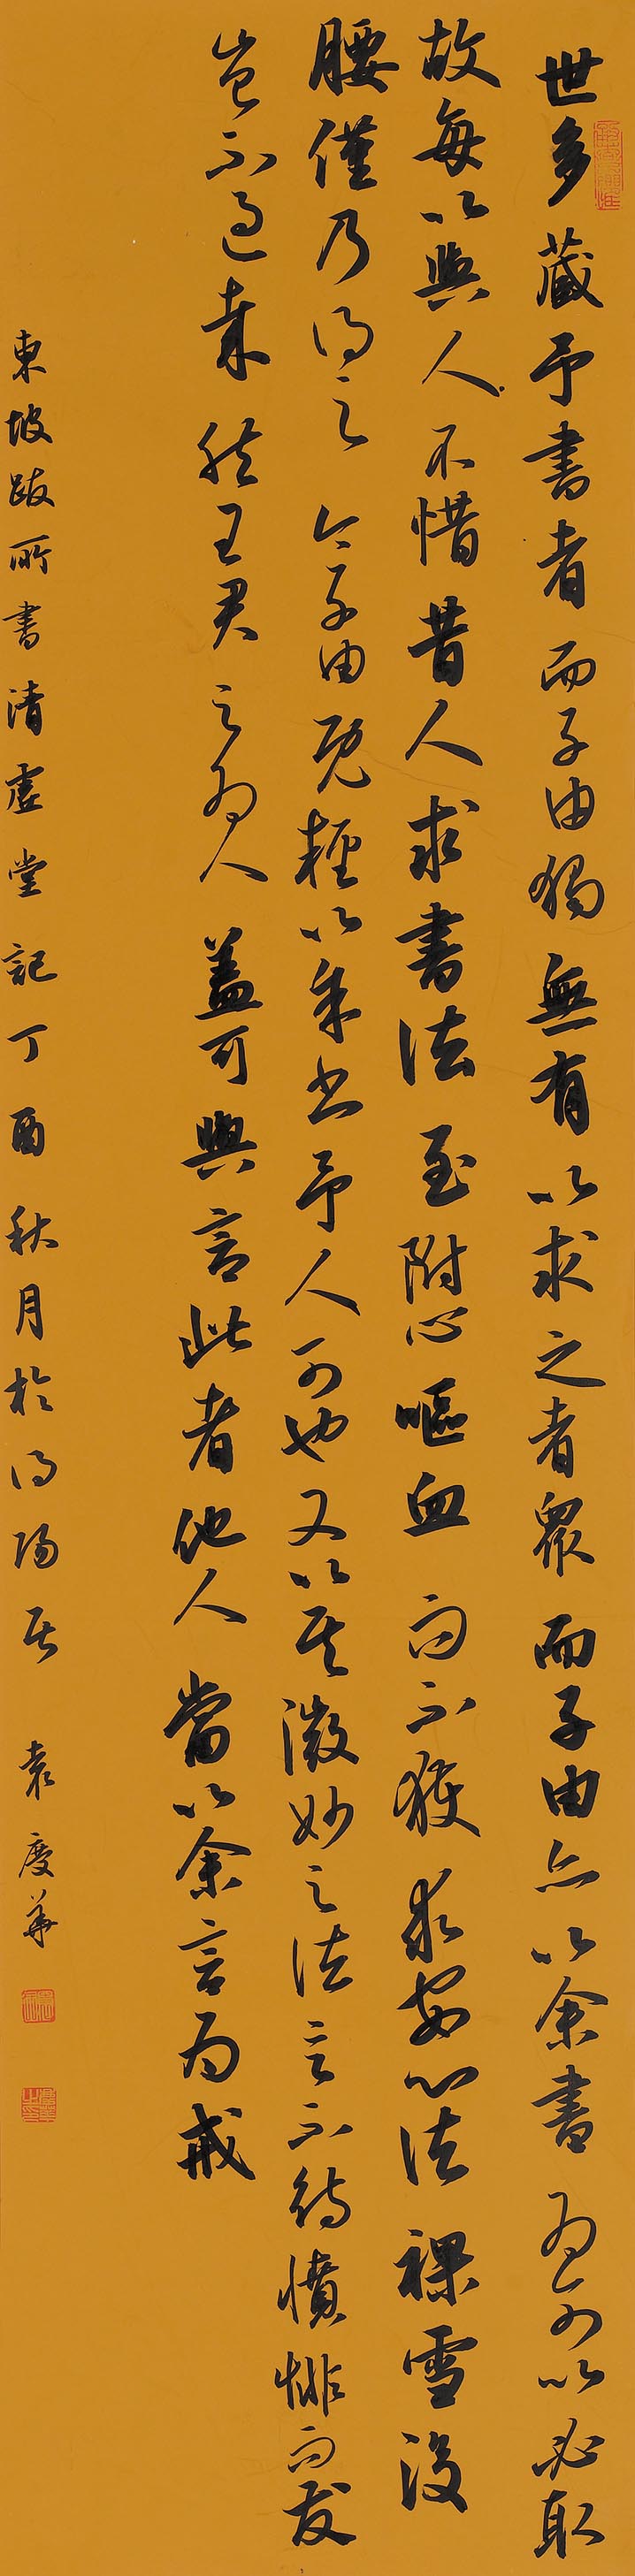 世多藏予書者而子由獨無有以求之者眾而子由亦以余書為可以必取
故每以與人不惜昔人求書法至拊心嘔血而不獲求安心法裸雪沒
腰僅乃得之今子由既輕以余書予人可也又以其微妙之法言不待憤悱而发
豈不過哉然王君之為人蓋可與言此者他人當以余言為戒
東坡跋所書清虛堂記丁酉秋月於得陽居 袁慶華